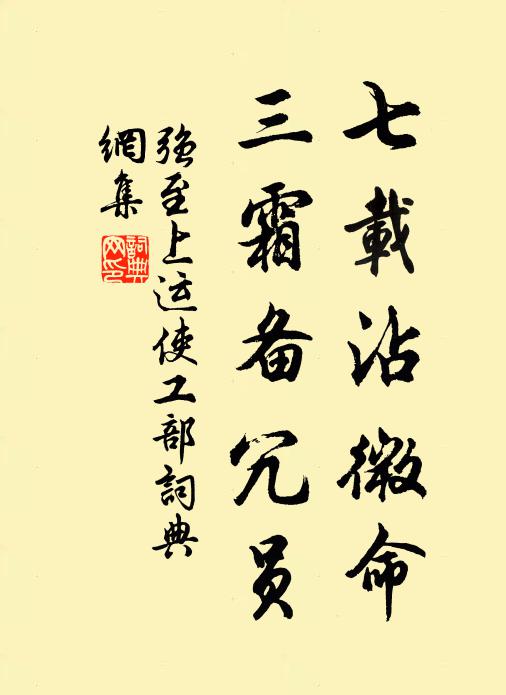 七載沾微命
三霜备冗员
强至上运使工部詞典
網集
詞典网印